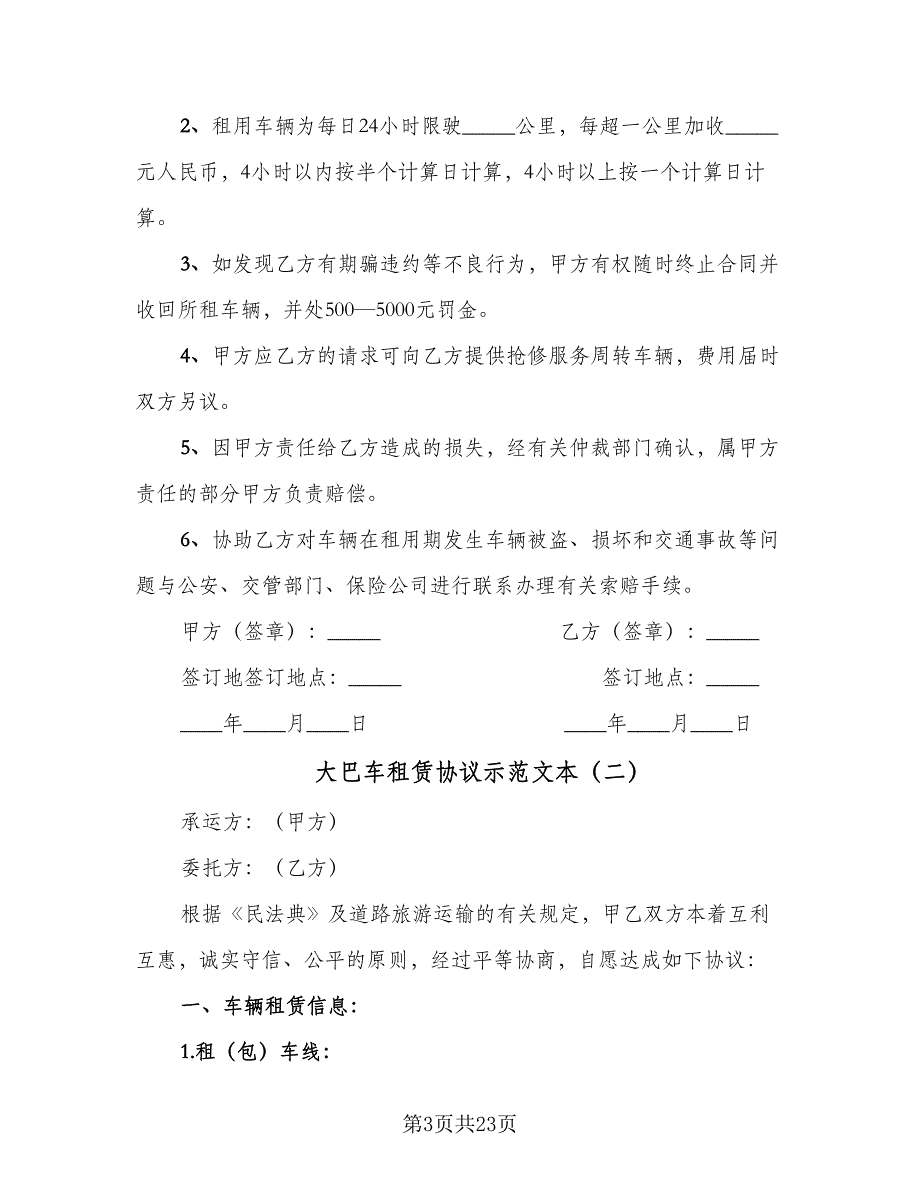 2、租用车辆为每日24小时限驶_____公里，每超一公里加收_____
元人民币，4小时以内按半个计算日计算，4小时以上按一个计算日计
算。
3、如发现乙方有期骗违约等不良行为，甲方有权随时终止合同并
收回所租车辆，并处500—5000元罚金。
4、甲方应乙方的请求可向乙方提供抢修服务周转车辆，费用届时
双方另议。
5、因甲方责任给乙方造成的损失，经有关仲裁部门确认，属甲方
责任的部分甲方负责赔偿。
6、协助乙方对车辆在租用期发生车辆被盗、损坏和交通事故等问
题与公安、交管部门、保险公司进行联系办理有关索赔手续。
甲方（签章）：_____ 乙方（签章）：_____
签订地签订地点：_____ 签订地点：_____
____年____月____日 ____年____月____日
大巴车租赁协议示范文本（二）
承运方：（甲方）
委托方：（乙方）
根据《民法典》及道路旅游运输的有关规定，甲乙双方本着互利
互惠，诚实守信、公平的原则，经过平等协商，自愿达成如下协议：
一、车辆租赁信息：
1.租（包）车线：
第3页共23页